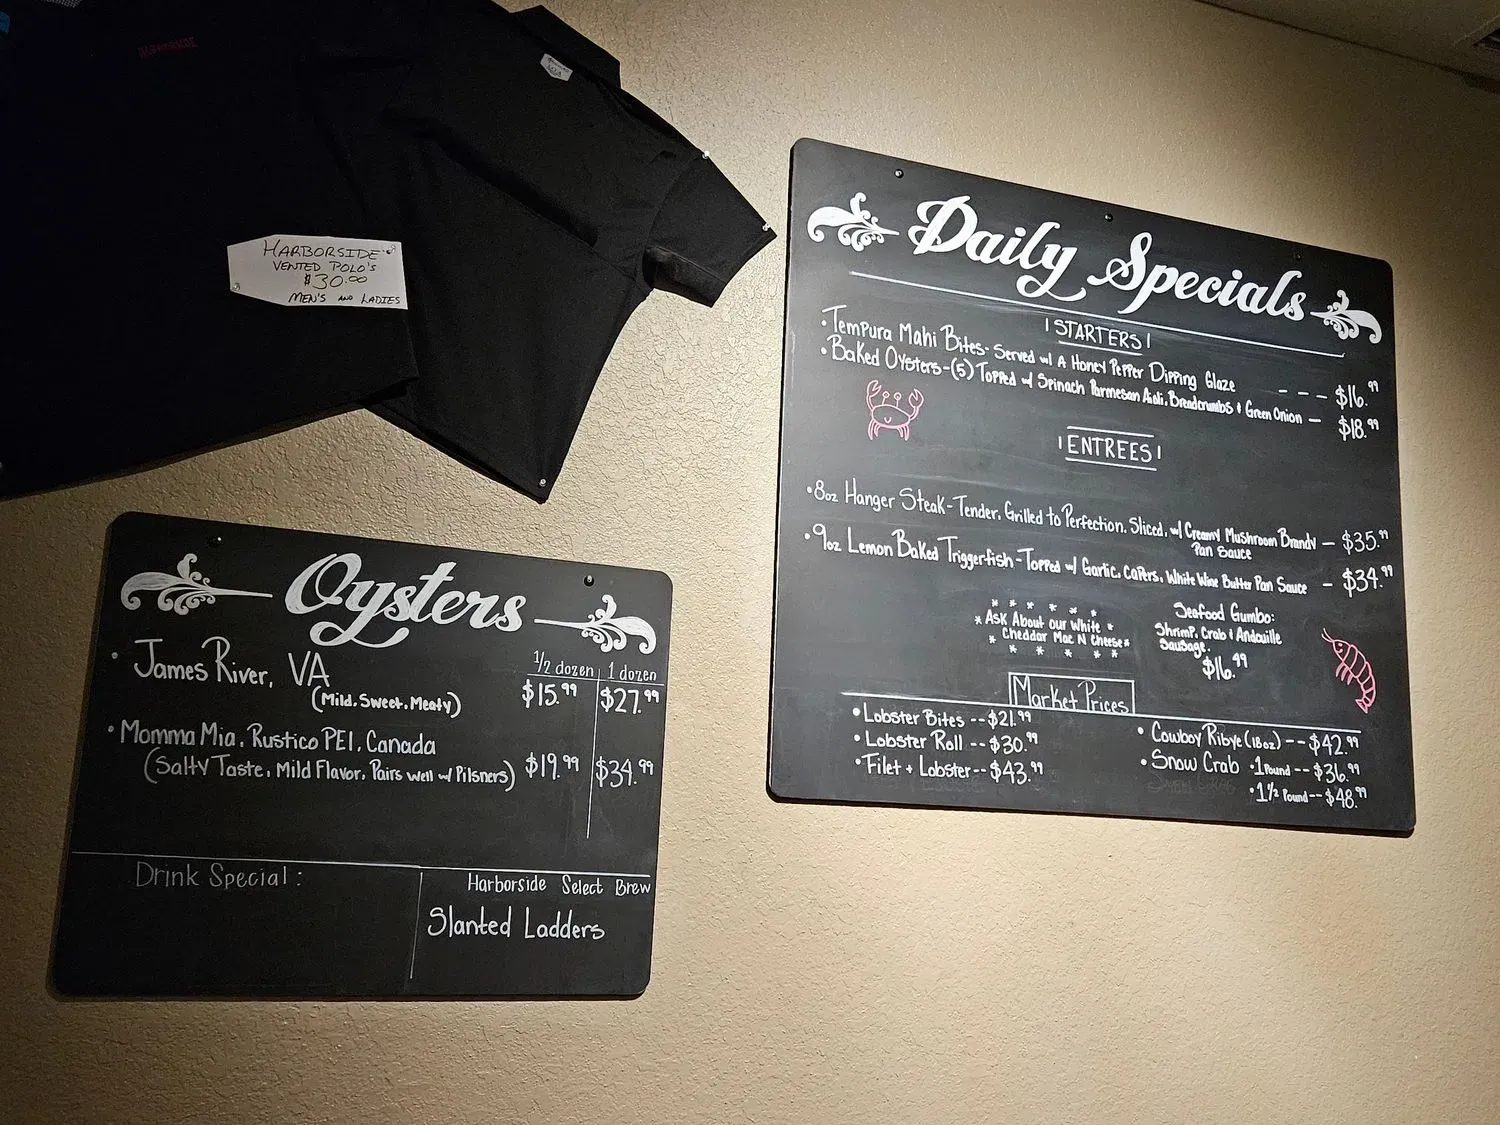 HARBORSIDE
VENTED POLO'S
$30.00
MEN'S AND LADIES
Oysters
1/2 dozen 1 dozen
• James River, VA
(Mild, Sweet, Meaty) $15.99 $27.99
• Momma Mia, Rustico PEI, Canada
(Salty Taste, Mild Flavor, Pairs well w/ Pilsners) $19.99 $34.99
Drink Special:
Harborside Select Brew
Slanted Ladders
Daily Specials
STARTERS
• Tempura Mahi Bites- Served w/ A Honey Pepper Dipping Glaze --- $16.99
• Baked Oysters-(5) Topped w/ Spinach Parmesan Aioli, Breadcrumbs & Green Onion — $18.99
ENTREES
• 8oz Hanger Steak-Tender, Grilled to Perfection, Sliced, w/ Creamy Mushroom Brandy — $35.99
Pan Sauce
• 9oz Lemon Baked Triggerfish-Topped w/ Garlic, Capers, White Wine Butter Pan Sauce — $34.99
* Ask About our White *
* Cheddar Mac N Cheese *
Seafood Gumbo:
Shrimp, Crab & Andouille
Sausage.
$16.49
Market Prices
• Lobster Bites --$21.99
• Lobster Roll --$30.99
• Filet + Lobster--$43.99
• Cowboy Ribye (18oz) --$42.99
• Snow Crab •1 Pound--$36.99
•1 1/2 Pound--$48.99